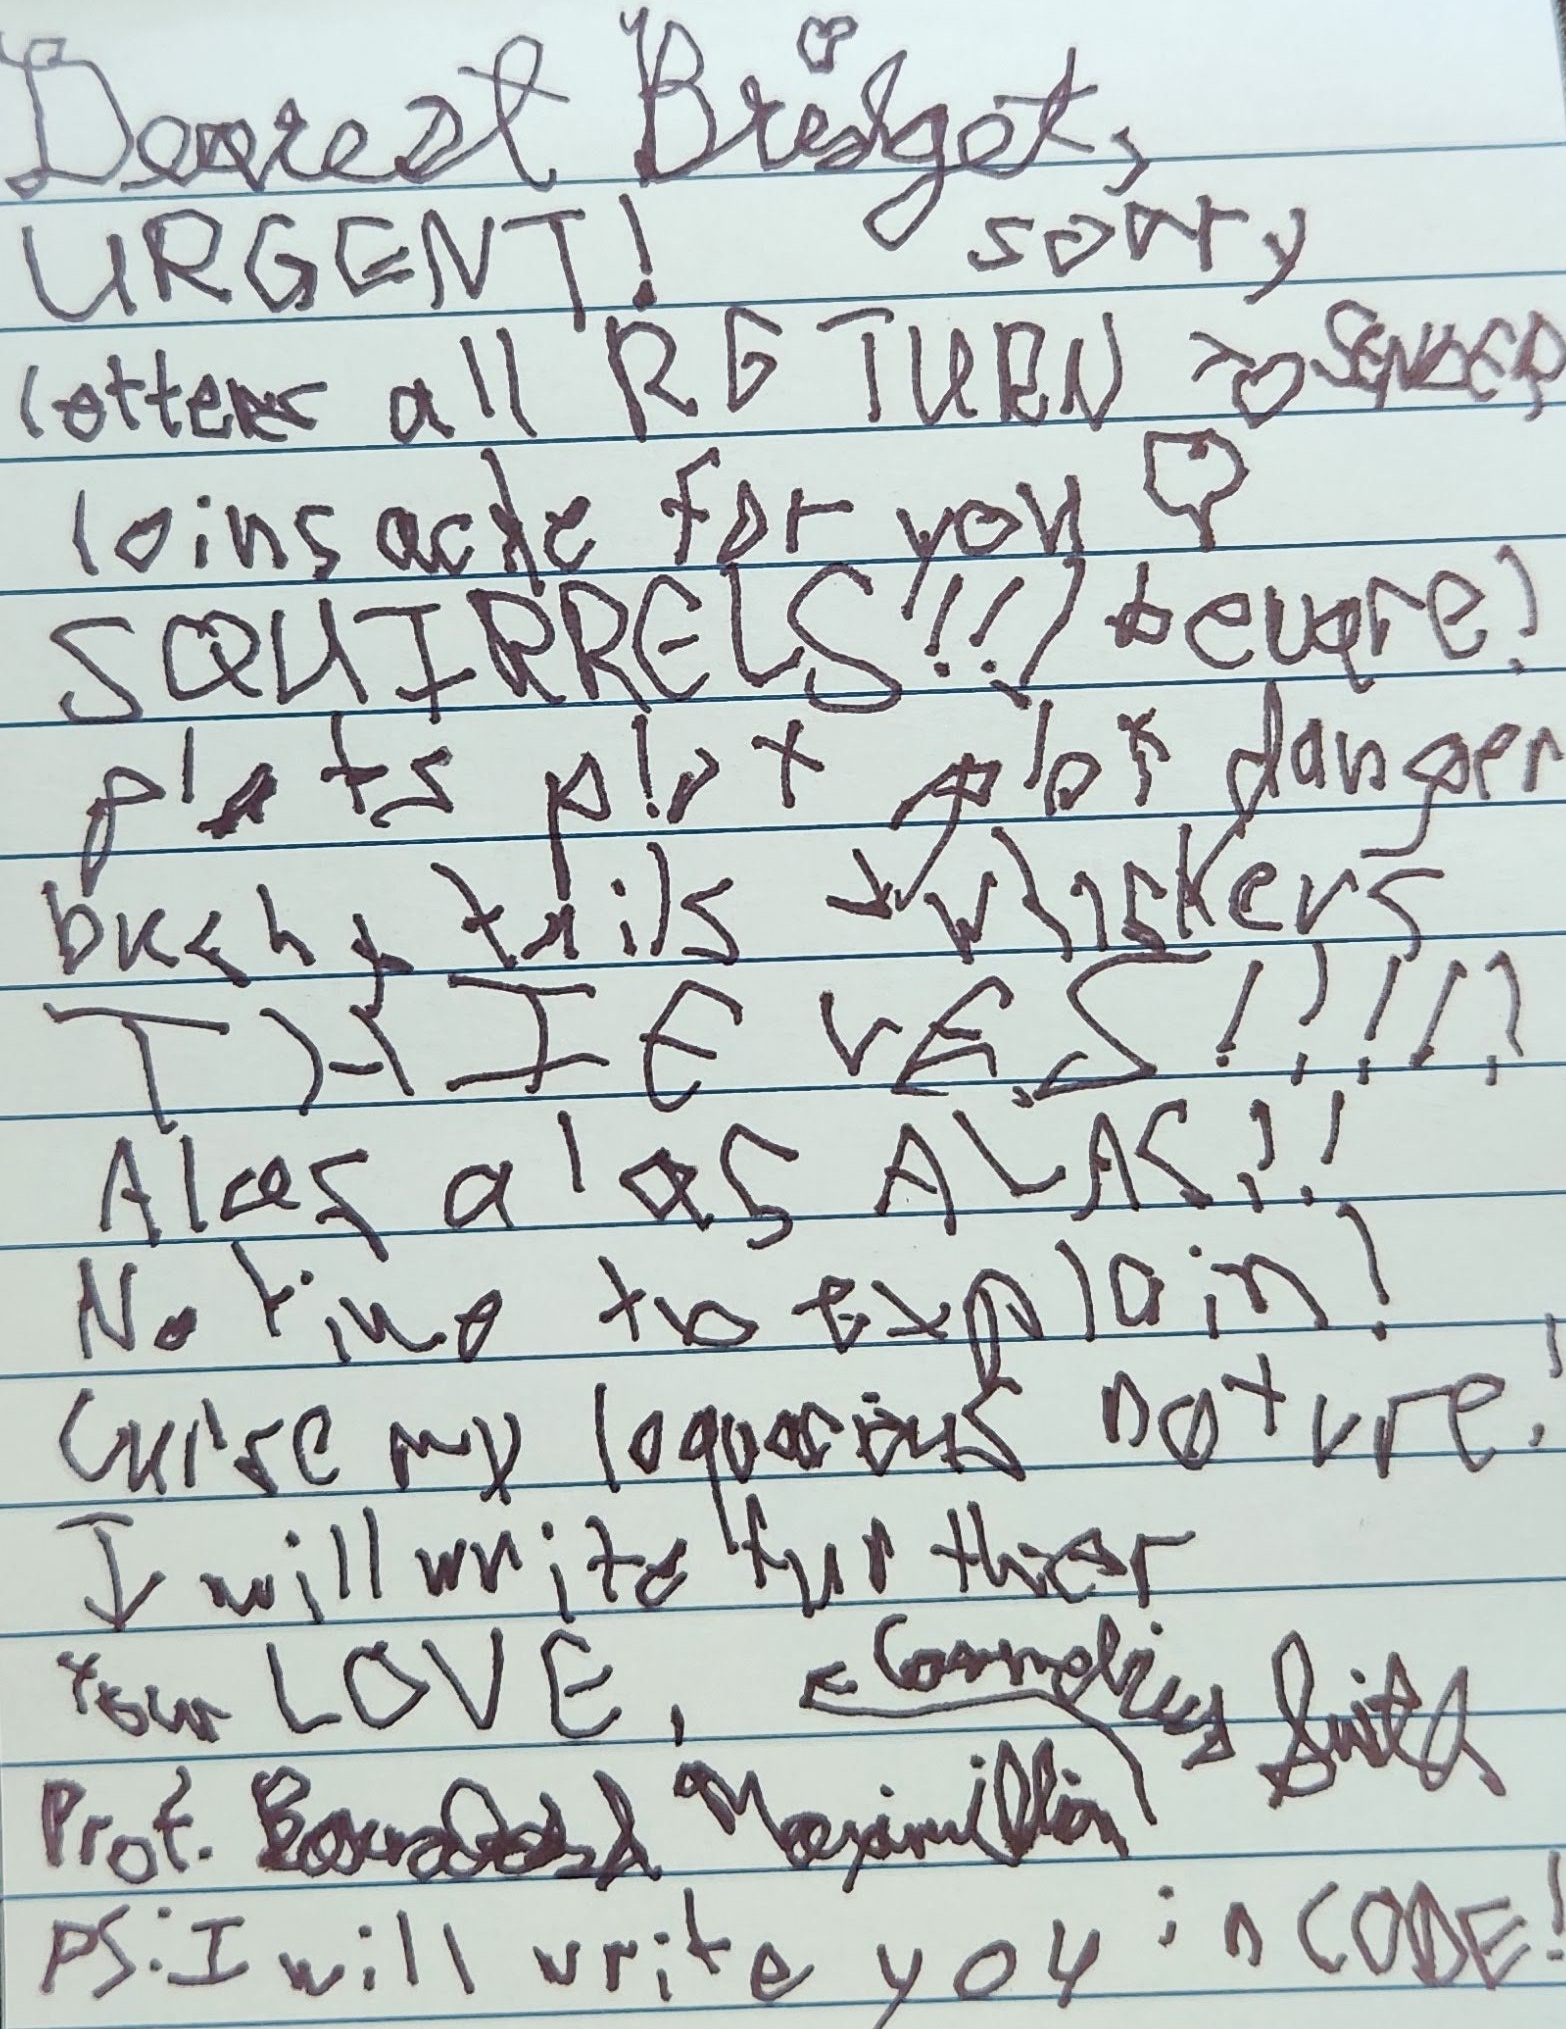 Dearest Bridget,
URGENT! sorry
letters all RETURN to SENDER
loins ache for you
SQUIRRELS!!!! beware!
plots plot plot danger
bushy tails + whiskers
THIEVES!!!!!
Alas alas ALAS!!!
No time to explain!
Curse my loquacious nature!
I will write further
Your LOVE,
Prof. Maximillian Cornelius
PS: I will write you in CODE!